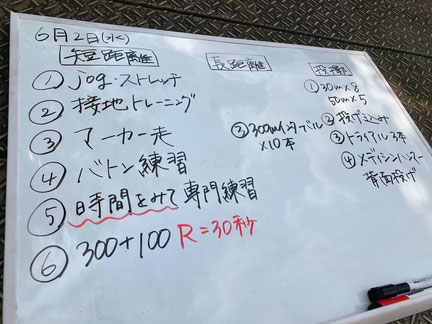 6月2日(水)
短距離
① jog・ストレッチ
② 接地トレーニング
③ マーカー走
④ バトン練習
⑤ 時間をみて専門練習
⑥ 300+100 R=30秒
長距離
③ 300mインターバル
×10本
投擲
① 30m×8
50m×5
② 投げこみ
③ トライアル3本
④ メディシンハンマー
背面投げ